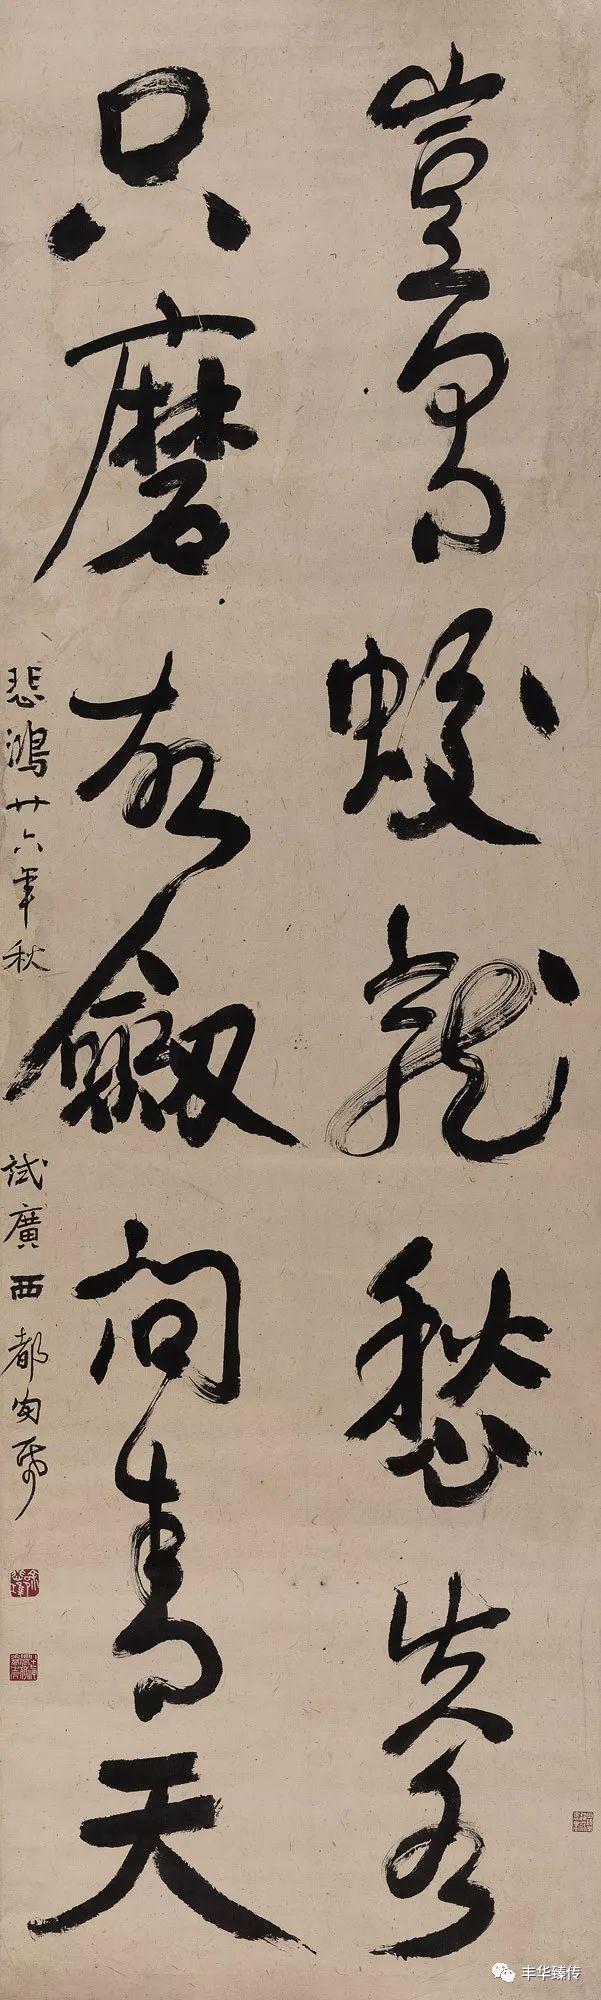 豈蛟龍愁失水
只磨劍問青天
悲鴻廿六年秋 試廣西都安紙
丰华臻传